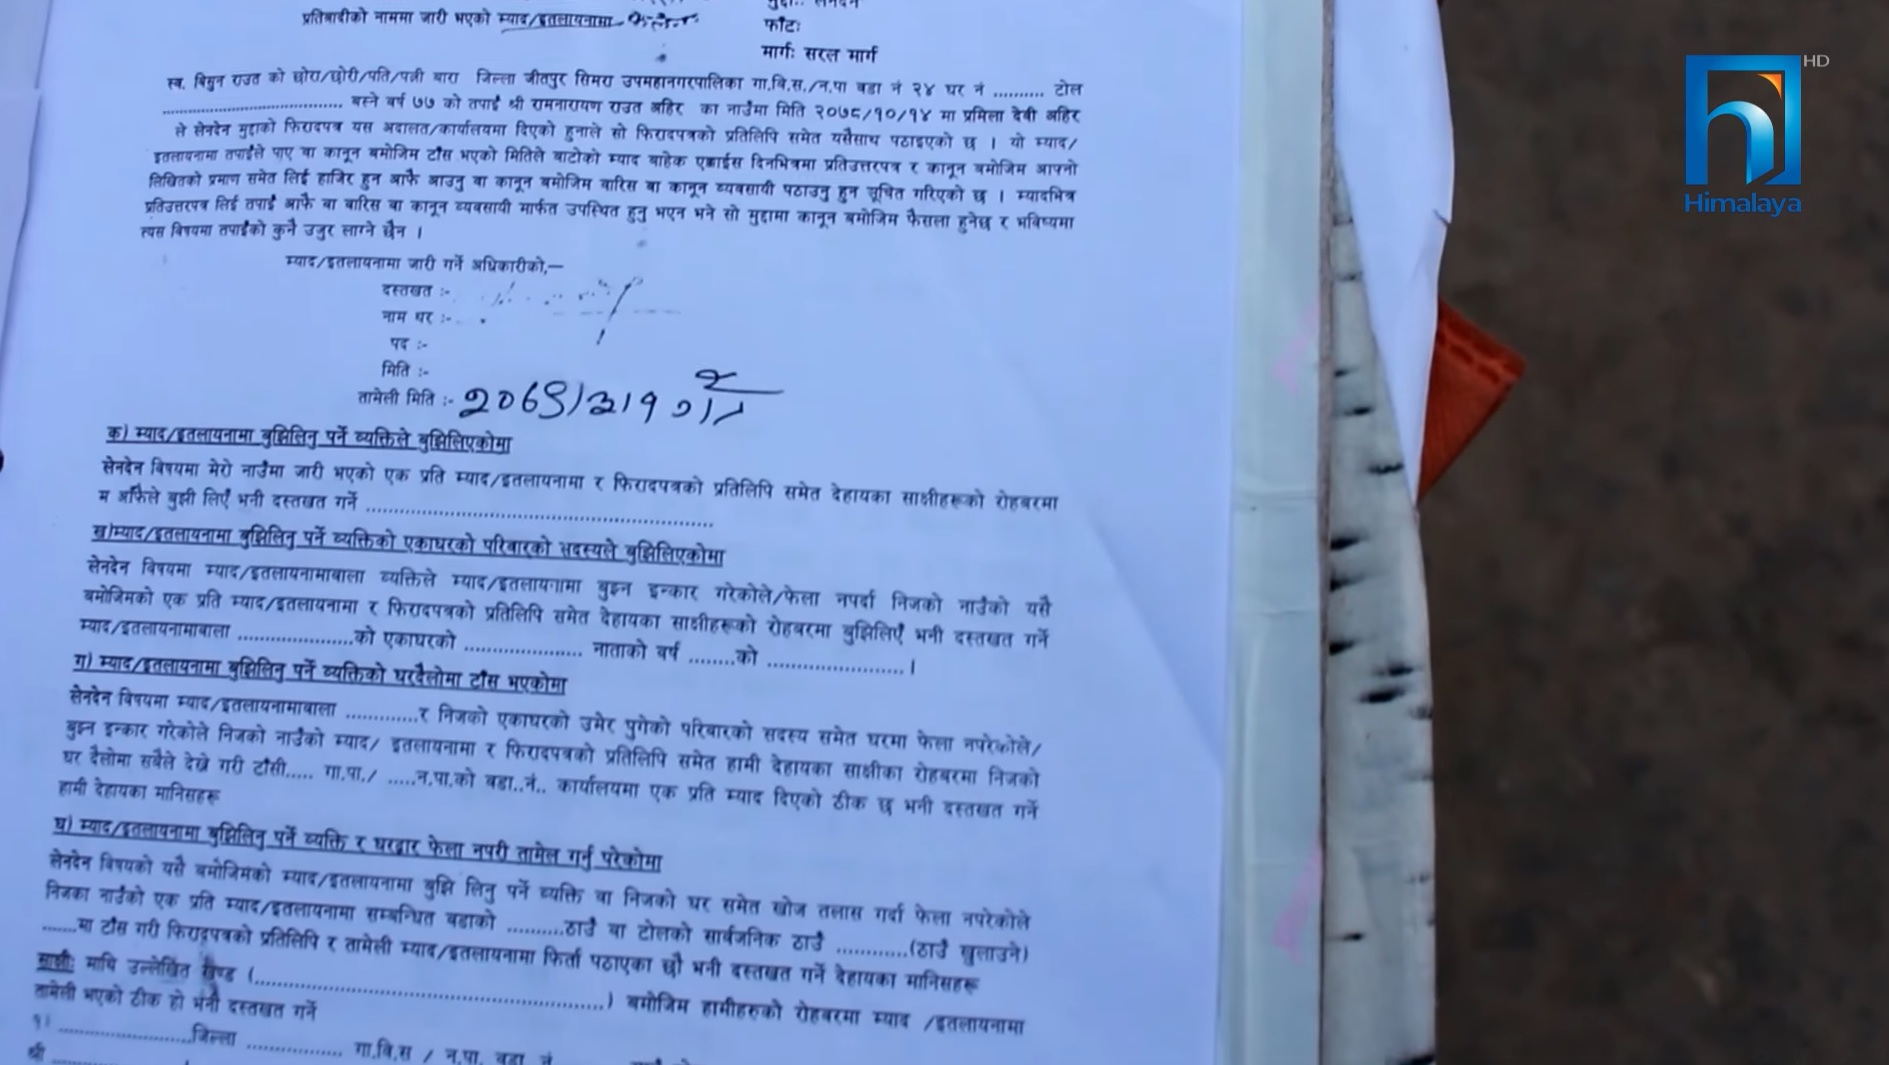 मुद्दाः लेनदेन
प्रतिवादीको नाममा जारी भएको म्याद/इतलायनामा
फाँटः
मार्गः सरल मार्ग
स्व. बिगुन राउत को छोरा/छोरी/पति/पत्नी बारा जिल्ला जीतपुर सिमरा उपमहानगरपालिका गा.वि.स./न.पा वडा नं २४ घर नं .......... टोल
.................................... बस्ने वर्ष ७७ को तपाईं श्री रामनारायण राउत अहिर का नाउँमा मिति २०७८/१०/१४ मा प्रमिला देवी अहिर
ले लेनदेन मुद्दाको फिरादपत्र यस अदालत/कार्यालयमा दिएको हुनाले सो फिरादपत्रको प्रतिलिपि समेत यसैसाथ पठाइएको छ । यो म्याद/
इतलायनामा तपाईंले पाए वा कानून बमोजिम टाँस भएको मितिले बाटोको म्याद बाहेक एक्काईस दिनभित्रमा प्रतिउत्तरपत्र र कानून बमोजिम आफ्नो
लिखितको प्रमाण समेत लिई हाजिर हुन आफै आउनु वा कानून बमोजिम वारिस वा कानून व्यवसायी पठाउनु हुन सूचित गरिएको छ । म्यादभित्र
प्रतिउत्तरपत्र लिई तपाईं आफै वा वारिस वा कानून व्यवसायी मार्फत उपस्थित हुनु भएन भने सो मुद्दामा कानून बमोजिम फैसला हुनेछ र भविष्यमा
त्यस विषयमा तपाईंको कुनै उजुर लाग्ने छैन ।
म्याद/इतलायनामा जारी गर्ने अधिकारीको,—
दस्तखत :-
नाम थर :-
पद :-
मिति :-
तामेली मिति :-
क) म्याद/इतलायनामा बुझिलिनु पर्ने व्यक्तिले बुझिलिएकोमा
लेनदेन विषयमा मेरो नाउँमा जारी भएको एक प्रति म्याद/इतलायनामा र फिरादपत्रको प्रतिलिपि समेत देहायका साक्षीहरूको रोहबरमा
म आफैले बुझी लिएँ भनी दस्तखत गर्ने ..............................................................
ख)म्याद/इतलायनामा बुझिलिनु पर्ने व्यक्तिको एकाघरको परिवारको सदस्यले बुझिलिएकोमा
लेनदेन विषयमा म्याद/इतलायनामावाला व्यक्तिले म्याद/इतलायनामा बुझ्न इन्कार गरेकोले/फेला नपर्दा निजको नाउँको यसै
बमोजिमको एक प्रति म्याद/इतलायनामा र फिरादपत्रको प्रतिलिपि समेत देहायका साक्षीहरूको रोहबरमा बुझिलिएँ भनी दस्तखत गर्ने
म्याद/इतलायनामावाला .....................को एकाघरको ..................... नाताको वर्ष ........को ......................... ।
ग) म्याद/इतलायनामा बुझिलिनु पर्ने व्यक्तिको घरदैलोमा टाँस भएकोमा
लेनदेन विषयमा म्याद/इतलायनामावाला .............र निजको एकाघरको उमेर पुगेको परिवारको सदस्य समेत घरमा फेला नपरेकोले/
बुझ्न इन्कार गरेकोले निजको नाउँको म्याद/ इतलायनामा र फिरादपत्रको प्रतिलिपि समेत हामी देहायका साक्षीका रोहबरमा निजको
घर दैलोमा सबैले देख्ने गरी टाँसी..... गा.पा./ .....न.पा.को वडा..नं.. कार्यालयमा एक प्रति म्याद दिएको ठीक छ भनी दस्तखत गर्ने
हामी देहायका मानिसहरू
घ) म्याद/इतलायनामा बुझिलिनु पर्ने व्यक्ति र घरद्वार फेला नपरी तामेल गर्नु परेकोमा
लेनदेन विषयको यसै बमोजिमको म्याद/इतलायनामा बुझि लिनु पर्ने व्यक्ति वा निजको घर समेत खोज तलास गर्दा फेला नपरेकोले
निजका नाउँको एक प्रति म्याद/इतलायनामा सम्बन्धित वडाको ..........ठाउँ वा टोलको सार्वजनिक ठाउँ .............(ठाउँ खुलाउने)
.......मा टाँस गरी फिरादपत्रको प्रतिलिपि र तामेली म्याद/इतलायनामा फिर्ता पठाएका छौं भनी दस्तखत गर्ने देहायका मानिसहरू
साक्षीः माथि उल्लेखित खण्ड (..............................................................) बमोजिम हामीहरुको रोहबरमा म्याद /इतलायनामा
तामेली भएको ठीक हो भनी दस्तखत गर्ने
१। ........................जिल्ला ................. गा.वि.स / न.पा. वडा नं
श्री ........................
HD
Himalaya